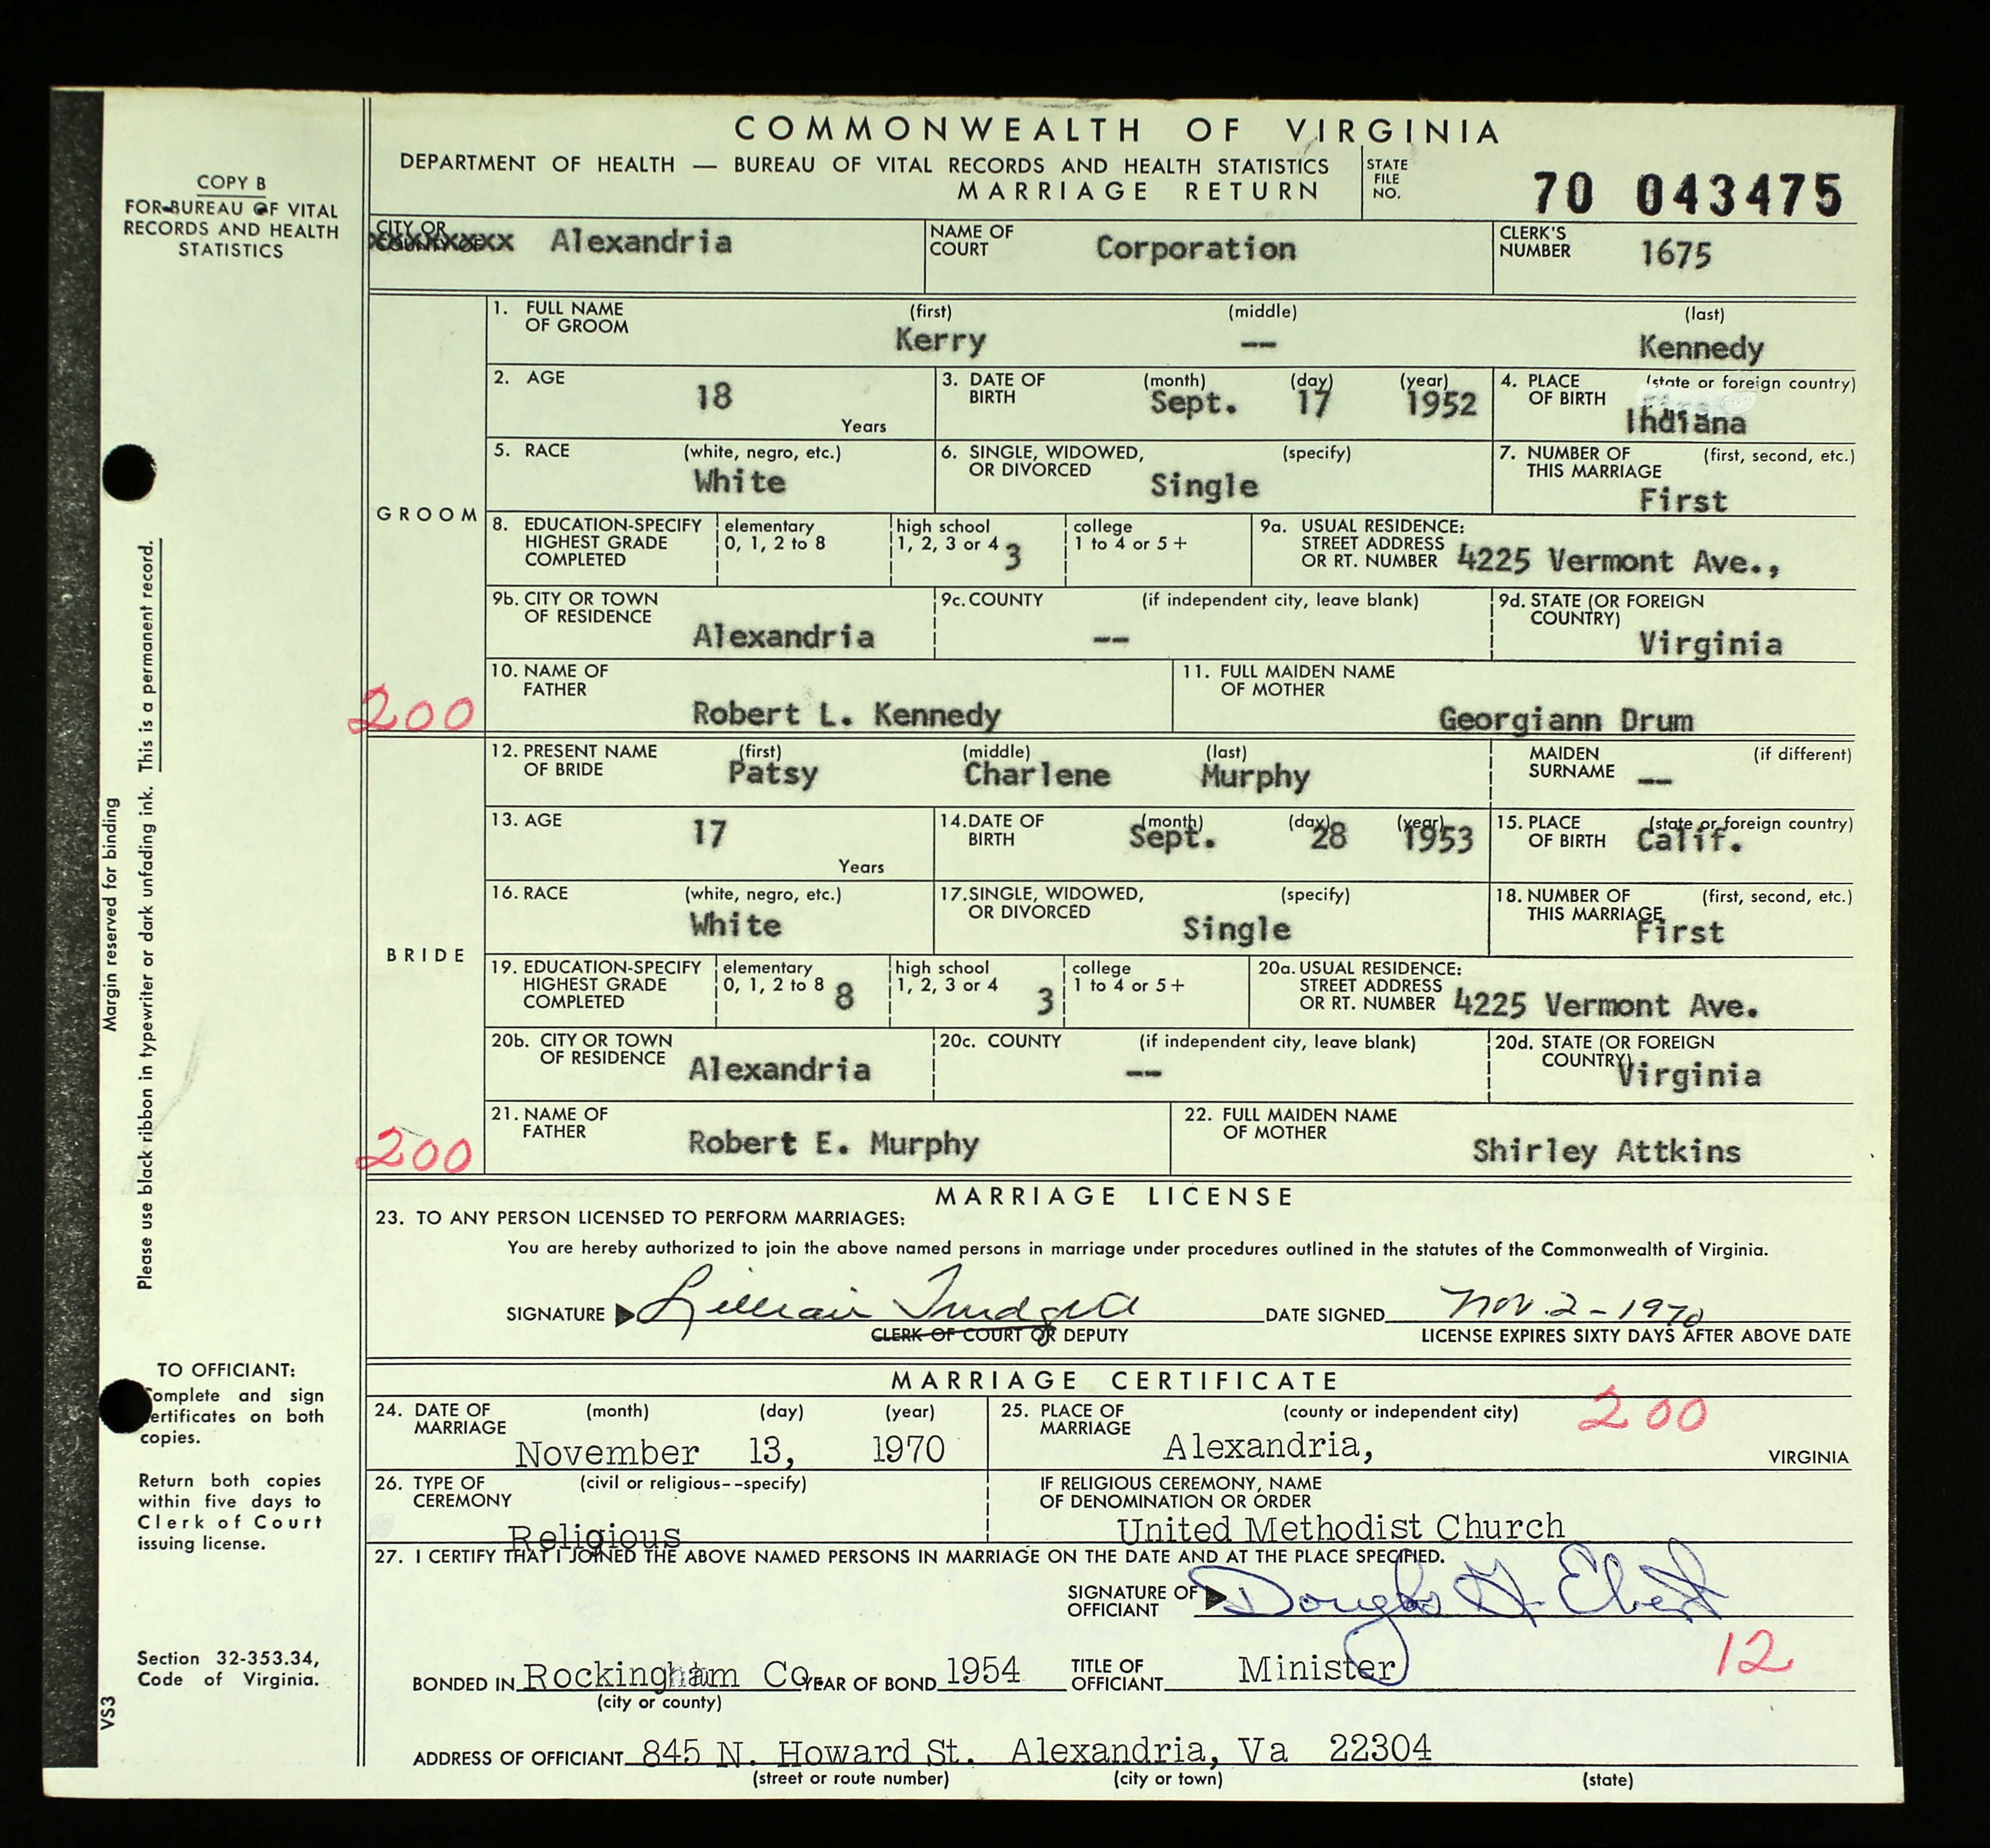 COMMONWEALTH OF VIRGINIA
DEPARTMENT OF HEALTH — BUREAU OF VITAL RECORDS AND HEALTH STATISTICS
MARRIAGE RETURN
STATE FILE NO. 70 043475
COPY B
FOR BUREAU OF VITAL
RECORDS AND HEALTH
STATISTICS
CITY OR COUNTY OF xxxxxxxxx Alexandria NAME OF COURT Corporation CLERK'S NUMBER 1675
GROOM
1. FULL NAME OF GROOM (first) Kerry (middle) -- (last) Kennedy
2. AGE 18 Years 3. DATE OF BIRTH (month) Sept. (day) 17 (year) 1952 4. PLACE OF BIRTH (state or foreign country) Indiana
5. RACE (white, negro, etc.) White 6. SINGLE, WIDOWED, OR DIVORCED (specify) Single 7. NUMBER OF THIS MARRIAGE (first, second, etc.) First
8. EDUCATION-SPECIFY HIGHEST GRADE COMPLETED elementary 0, 1, 2 to 8 high school 1, 2, 3 or 4 3 college 1 to 4 or 5+ 9a. USUAL RESIDENCE: STREET ADDRESS OR RT. NUMBER 4225 Vermont Ave.,
9b. CITY OR TOWN OF RESIDENCE Alexandria 9c. COUNTY (if independent city, leave blank) -- 9d. STATE (OR FOREIGN COUNTRY) Virginia
10. NAME OF FATHER Robert L. Kennedy 11. FULL MAIDEN NAME OF MOTHER Georgiann Drum
200
BRIDE
12. PRESENT NAME OF BRIDE (first) Patsy (middle) Charlene (last) Murphy MAIDEN SURNAME (if different) --
13. AGE 17 Years 14. DATE OF BIRTH (month) Sept. (day) 28 (year) 1953 15. PLACE OF BIRTH (state or foreign country) Calif.
16. RACE (white, negro, etc.) White 17. SINGLE, WIDOWED, OR DIVORCED (specify) Single 18. NUMBER OF THIS MARRIAGE (first, second, etc.) First
19. EDUCATION-SPECIFY HIGHEST GRADE COMPLETED elementary 0, 1, 2 to 8 8 high school 1, 2, 3 or 4 3 college 1 to 4 or 5+ 20a. USUAL RESIDENCE: STREET ADDRESS OR RT. NUMBER 4225 Vermont Ave.
20b. CITY OR TOWN OF RESIDENCE Alexandria 20c. COUNTY (if independent city, leave blank) -- 20d. STATE (OR FOREIGN COUNTRY) Virginia
21. NAME OF FATHER Robert E. Murphy 22. FULL MAIDEN NAME OF MOTHER Shirley Attkins
200
MARRIAGE LICENSE
23. TO ANY PERSON LICENSED TO PERFORM MARRIAGES:
You are hereby authorized to join the above named persons in marriage under procedures outlined in the statutes of the Commonwealth of Virginia.
SIGNATURE Lillian DATE SIGNED Nov. 2 - 1970
CLERK OF COURT OR DEPUTY LICENSE EXPIRES SIXTY DAYS AFTER ABOVE DATE
MARRIAGE CERTIFICATE
24. DATE OF MARRIAGE (month) November (day) 13, (year) 1970 25. PLACE OF MARRIAGE (county or independent city) Alexandria, VIRGINIA 200
26. TYPE OF CEREMONY (civil or religious--specify) Religious IF RELIGIOUS CEREMONY, NAME OF DENOMINATION OR ORDER United Methodist Church
27. I CERTIFY THAT I JOINED THE ABOVE NAMED PERSONS IN MARRIAGE ON THE DATE AND AT THE PLACE SPECIFIED.
SIGNATURE OF OFFICIANT Douglas H Ebert
12
BONDED IN Rockingham Co. YEAR OF BOND 1954 TITLE OF OFFICIANT Minister
(city or county)
ADDRESS OF OFFICIANT 845 N. Howard St. Alexandria, Va 22304
(street or route number) (city or town) (state)
Margin reserved for binding
Please use black ribbon in typewriter or dark unfading ink. This is a permanent record.
TO OFFICIANT:
Complete and sign
certificates on both
copies.
Return both copies
within five days to
Clerk of Court
issuing license.
Section 32-353.34,
Code of Virginia.
VS3